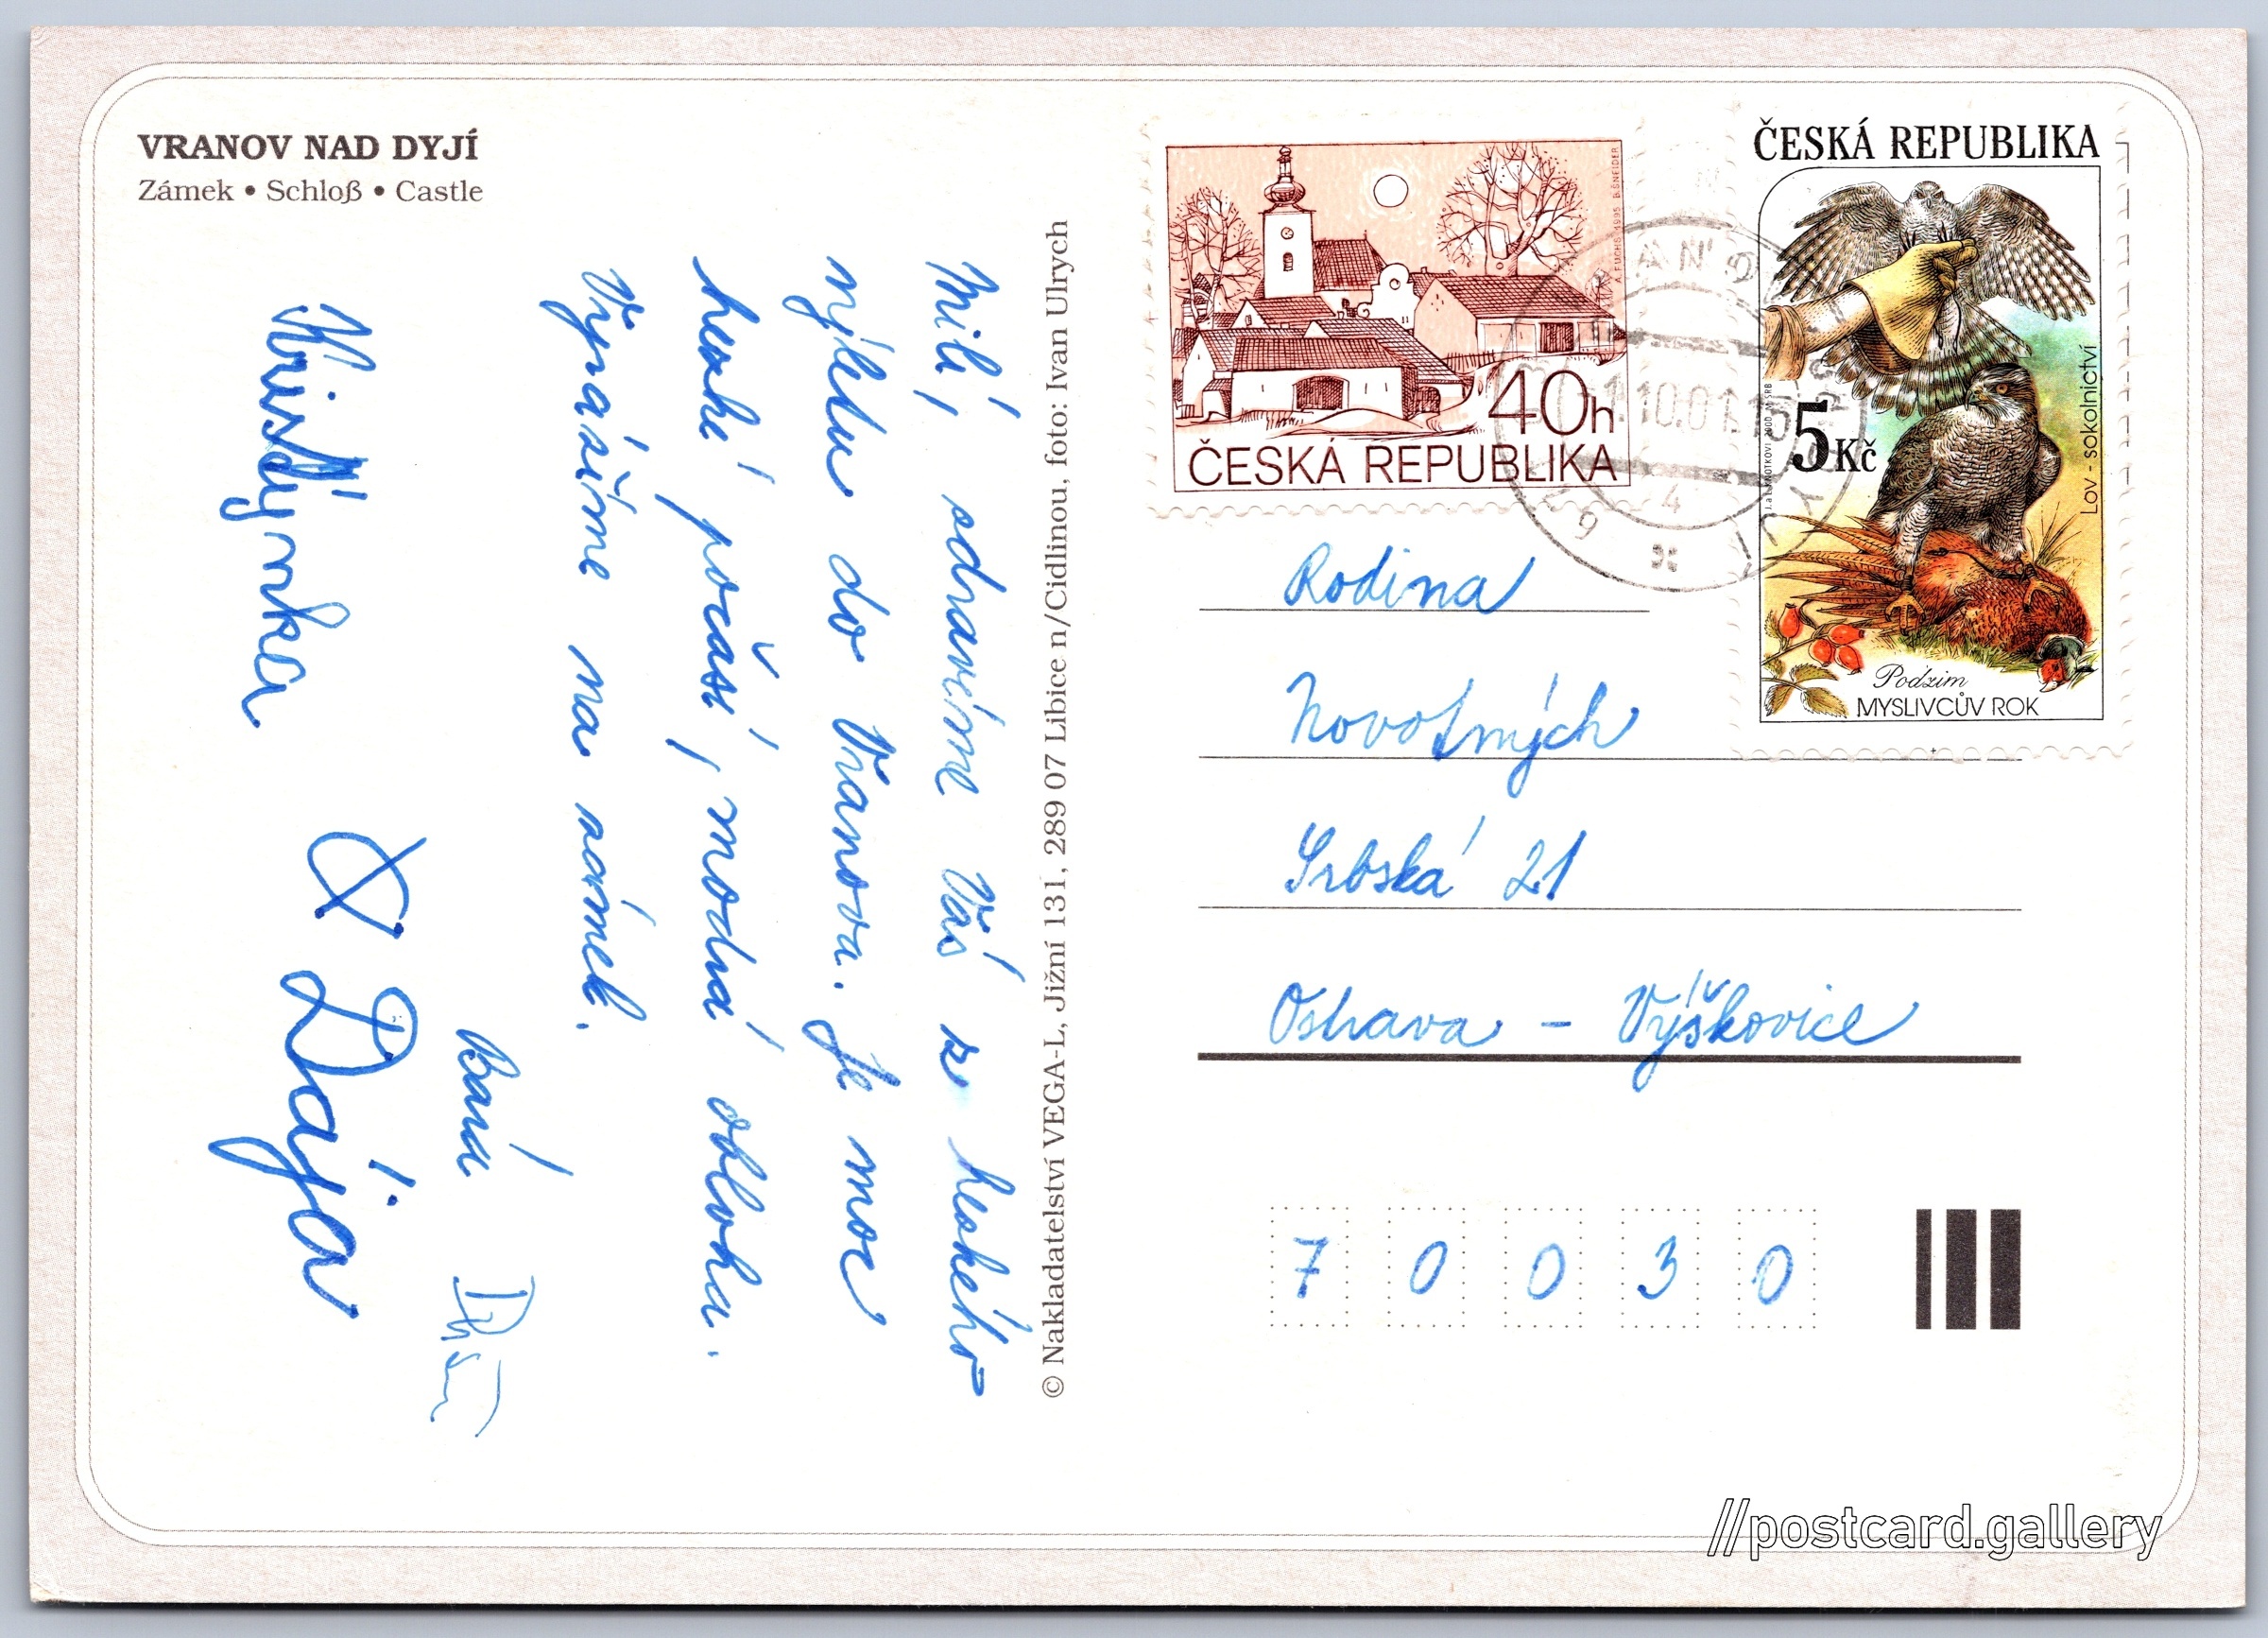 VRANOV NAD DYJÍ
Zámek • Schloß • Castle
Milí, zdravíme Vás z hezkého
výletu do Vranova. Je moc
hezké počasí, modrá obloha.
Vyrazíme na zámek.
Báďa
Kristýnka & Dája
© Nakladatelství VEGA-L, Jižní 131, 289 07 Libice n/Cidlinou, foto: Ivan Ulrych
A. FUCHS 1995 B. ŠNEIDER
40h
ČESKÁ REPUBLIKA
ČESKÁ REPUBLIKA
5 Kč
Lov - sokolnictví
Podzim
MYSLIVCŮV ROK
10.01.15
4
Rodina
Novotných
Srbská 21
Ostrava - Výškovice
7 0 0 3 0
//postcard.gallery